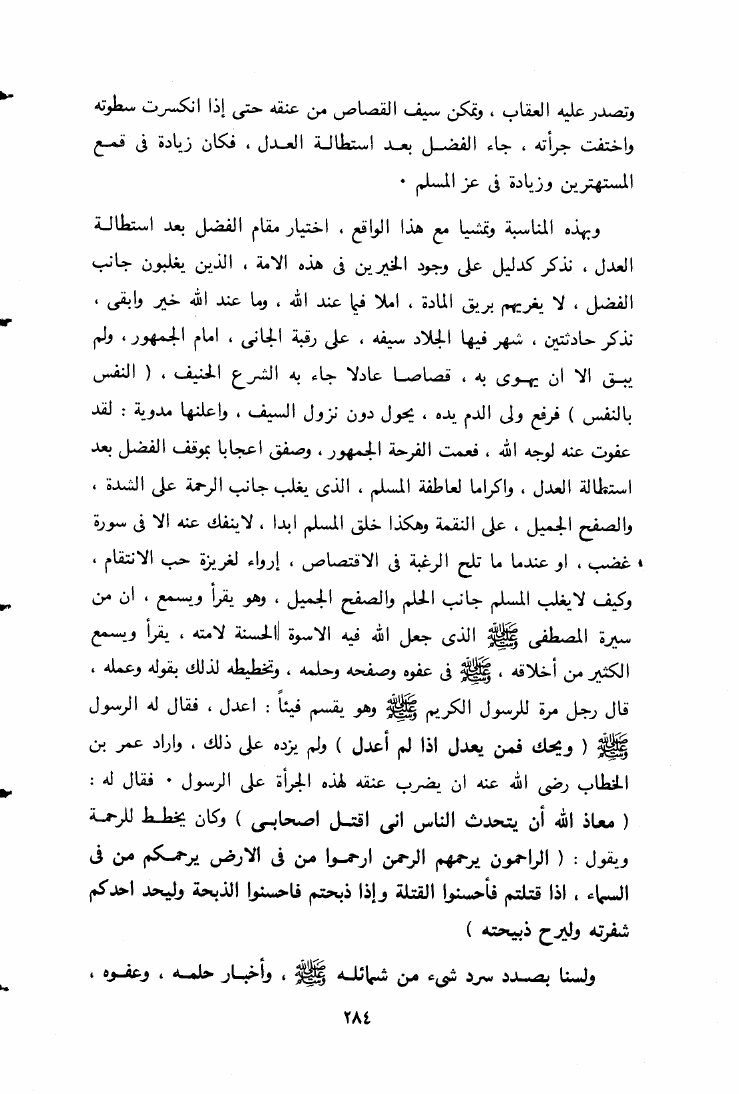 وتصدر عليه العقاب ، وتمكن سيف القصاص من عنقه حتى إذا انكسرت سطوته
واختفت جرأته ، جاء الفضل بعد استطالة العدل ، فكان زيادة فى قمع
المستهترين وزيادة فى عز المسلم ٠
وبهذه المناسبة وتمشيا مع هذا الواقع ، اختيار مقام الفضل بعد استطالة
العدل ، نذكر كدليل على وجود الخيرين فى هذه الامة ، الذين يغلبون جانب
الفضل ، لا يغريهم بريق المادة ، املا فيما عند الله ، وما عند الله خير وابقى ،
نذكر حادثتين ، شهر فيها الجلاد سيفه ، على رقبة الجانى ، امام الجمهور ، ولم
يبق الا ان يهوى به ، قصاصا عادلا جاء به الشرع الحنيف ، ( النفس
بالنفس ) فرفع ولى الدم يده ، يحول دون نزول السيف ، واعلنها مدوية : لقد
عفوت عنه لوجه الله ، فعمت الفرحة الجمهور ، وصفق اعجابا بموقف الفضل بعد
استطالة العدل ، واكراما لعاطفة المسلم ، الذى يغلب جانب الرحمة على الشدة ،
والصفح الجميل ، على النقمة وهكذا خلق المسلم ابدا ، لاينفك عنه الا فى سورة
غضب ، او عندما ما تلح الرغبة فى الاقتصاص ، إرواء لغريزة حب الانتقام ،
وكيف لايغلب المسلم جانب الحلم والصفح الجميل ، وهو يقرأ ويسمع ، ان من
سيرة المصطفى ﷺ الذى جعل الله فيه الاسوة الحسنة لامته ، يقرأ ويسمع
الكثير من أخلاقه ، ﷺ فى عفوه وصفحه وحلمه ، وتخطيطه لذلك بقوله وعمله ،
قال رجل مرة للرسول الكريم ﷺ وهو يقسم فيئاً : اعدل ، فقال له الرسول
ﷺ ( ويحك فمن يعدل اذا لم أعدل ) ولم يزده على ذلك ، واراد عمر بن
الخطاب رضى الله عنه ان يضرب عنقه لهذه الجرأة على الرسول ٠ فقال له :
( معاذ الله أن يتحدث الناس انى اقتل اصحابى ) وكان يخطط للرحمة
ويقول : ( الراحمون يرحمهم الرحمن ارحموا من فى الارض يرحمكم من فى
السماء ، اذا قتلتم فأحسنوا القتلة وإذا ذبحتم فاحسنوا الذبحة وليحد احدكم
شفرته وليرح ذبيحته )
ولسنا بصدد سرد شىء من شمائله ﷺ ، وأخبار حلمه ، وعفوه ،
٢٨٤